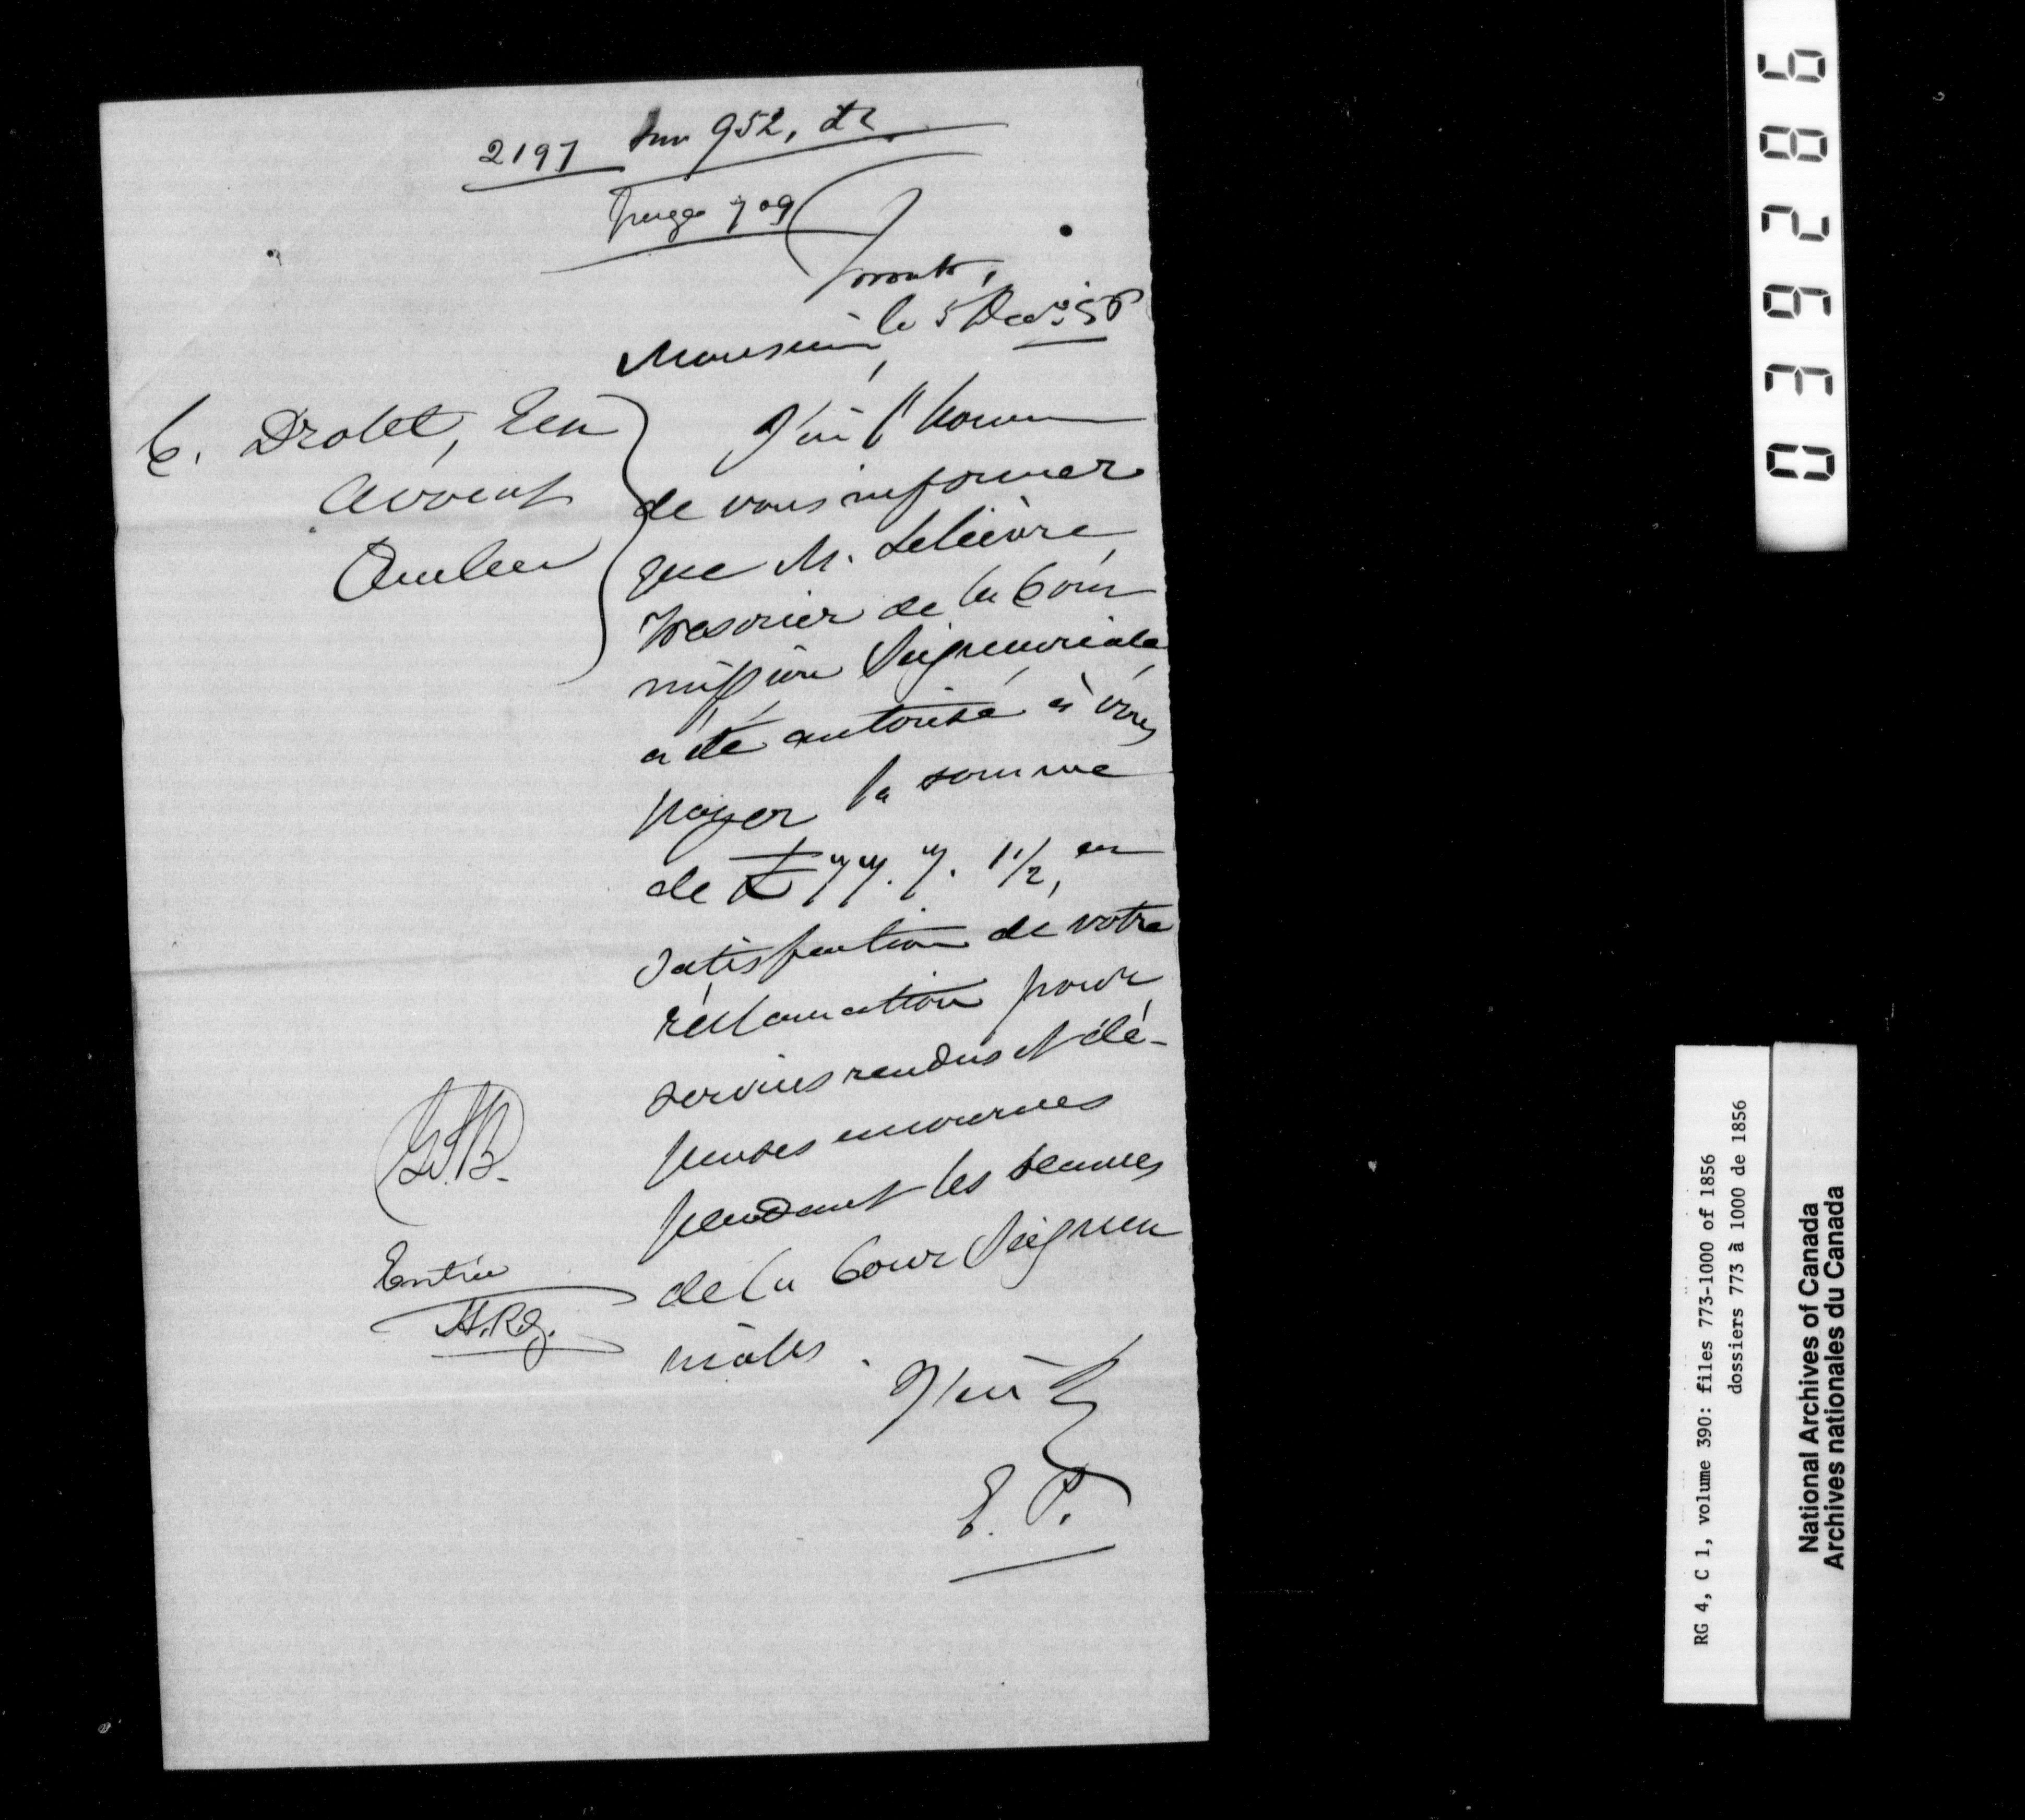 2197 Sur 952, &c
Page 709
Toronto,
le 5 Dec.. 56
Monsieur,
C. Drolet, Ecr
Avocat
Québec
J'ai l'honneur
de vous informer
que M. Lelièvre,
Trésorier de la Com
mission Seigneuriale,
a été autorisé à vous
payer la somme
de £77. 7. 1 1/2, en
satisfaction de votre
réclamation pour
services rendus et dé-
penses encourues
pendant les séances
de la Cour Seigneu
riales.
J'ai &
E. P.
Entrée
0396286
RG 4, C 1, volume 390: files 773-1000 of 1856
dossiers 773 à 1000 de 1856
National Archives of Canada
Archives nationales du Canada